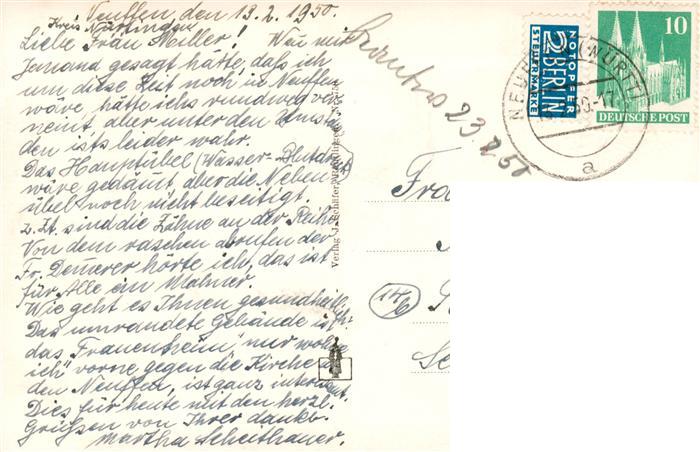 Neuffen den 13.2.1950.
Kreis Nürtingen
Liebe Frau Miller! Wenn mir
Jemand gesagt hätte, daß ich
um diese Zeit noch in Neuffen
wäre, hätte ichs rundweg ver
neint, aber unter den Umstän
den ists leider wahr.
Das Hauptübel (Wasser-Blutarm)
wäre gedämt aber die Neben
übel noch nicht beseitigt,
z. Zt. sind die Zähne an der Reihe
Von dem raschen abrufen der
Fr. Demerer hörte ich, das ist
für Alle ein Mahner.
Wie geht es Ihnen gesundheitl.
Das umrandete Gebäude ist
das "Frauenheim", nur wohne
ich vorne gegen die Kirche
den Neuffen, ist ganz interessant.
Dies für heute mit den herzl.
Grüßen von Ihrer dankb.
Martha Scheithauer.
23.2.50
Verlag J. Schäfer,
NOTOPFER
2 BERLIN
STEUERMARKE
10
DEUTSCHE POST
NEUFFEN (WÜRTT)
a
Fra
(14b)